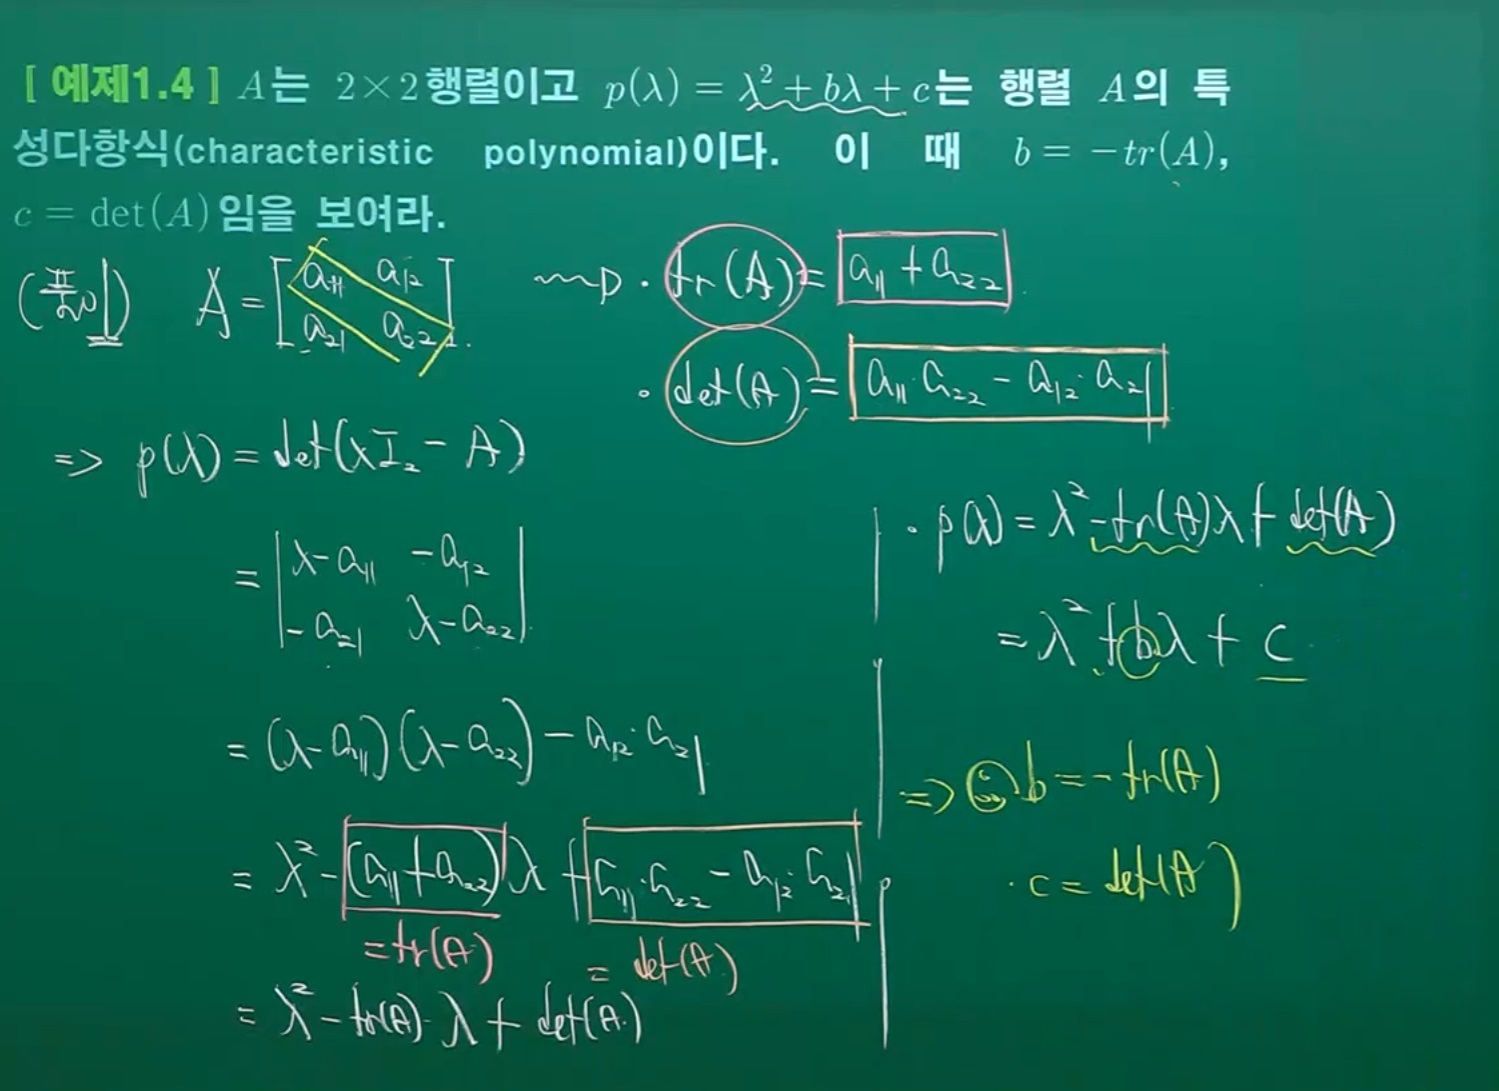 [ 예제1.4 ] A는 2×2 행렬이고 p(λ) = λ² + bλ + c는 행렬 A의 특
성다항식(characteristic polynomial)이다. 이 때 b = −tr(A),
c = det(A)임을 보여라.
(풀이) A = [a₁₁ a₁₂
a₂₁ a₂₂].
· tr(A) = a₁₁ + a₂₂
· det(A) = a₁₁·a₂₂ − a₁₂·a₂₁
=> p(λ) = det(λI₂ − A)
= |λ−a₁₁ −a₁₂
−a₂₁ λ−a₂₂|
= (λ−a₁₁)(λ−a₂₂) − a₁₂·a₂₁
= λ² − (a₁₁+a₂₂)λ + a₁₁·a₂₂ − a₁₂·a₂₁
= tr(A) = det(A)
= λ² − tr(A)·λ + det(A)
· p(λ) = λ² − tr(A)λ + det(A)
= λ² + bλ + c
=> b = −tr(A)
· c = det(A)